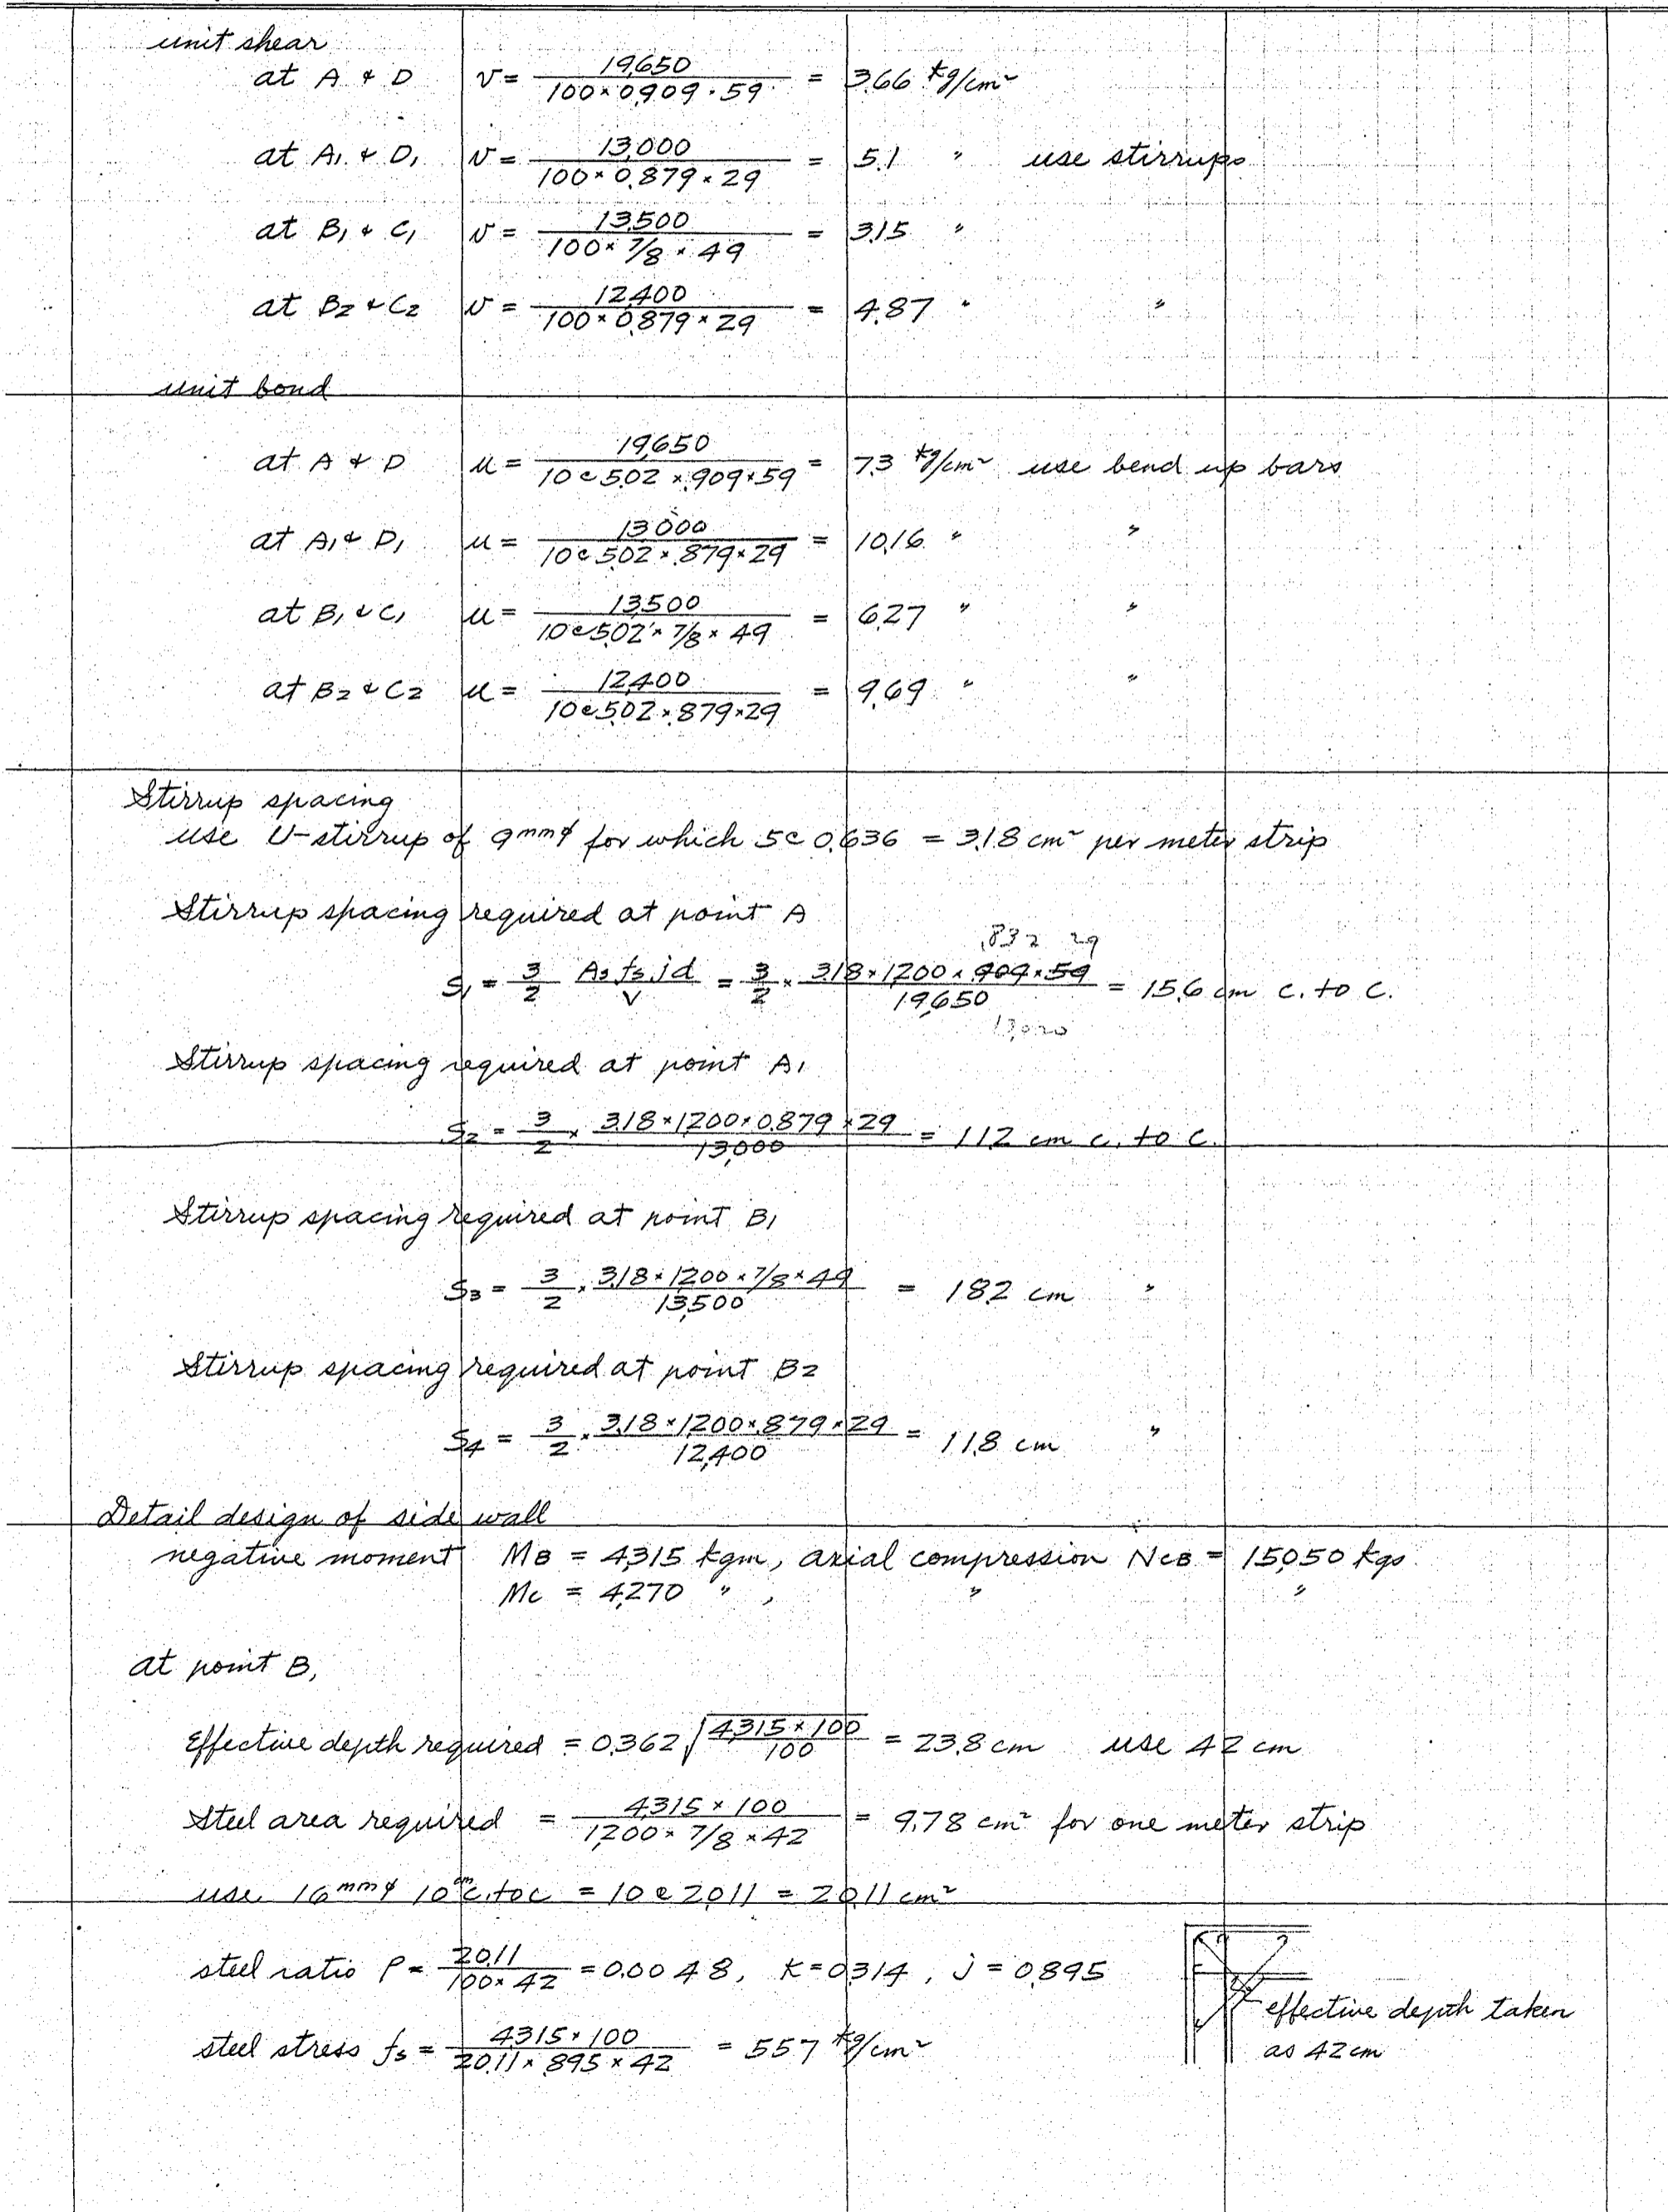 unit shear
at A & D v = 19,650 / 100×0.909×59 = 3.66 kg/cm²
at A₁ & D₁ v = 13,000 / 100×0.879×29 = 5.1 " use stirrups
at B₁ & C₁ v = 13,500 / 100×7/8×49 = 3.15 "
at B₂ & C₂ v = 12,400 / 100×0.879×29 = 4.87 " "
unit bond
at A & D u = 19,650 / 10@5.02×.909×59 = 7.3 kg/cm² use bend up bars
at A₁ & D₁ u = 13,000 / 10@5.02×.879×29 = 10.16 " "
at B₁ & C₁ u = 13,500 / 10@5.02×7/8×49 = 6.27 " "
at B₂ & C₂ u = 12,400 / 10@5.02×.879×29 = 9.69 " "
Stirrup spacing
use U-stirrup of 9mmφ for which 5@0.636 = 3.18 cm² per meter strip
Stirrup spacing required at point A
.832 29
S₁ = 3/2 As fs jd / V = 3/2 × 3.18×1,200×.909×59 / 19,650 = 15.6 cm c. to c.
Stirrup spacing required at point A₁
S₂ = 3/2 × 3.18×1,200×0.879×29 / 13,000 = 11.2 cm c. to c.
Stirrup spacing required at point B₁
S₃ = 3/2 × 3.18×1,200×7/8×49 / 13,500 = 18.2 cm "
Stirrup spacing required at point B₂
S₄ = 3/2 × 3.18×1,200×.879×29 / 12,400 = 11.8 cm "
Detail design of side wall
negative moment M_B = 4,315 kgm, axial compression N_CB = 15,050 kgs
M_C = 4,270 " , " "
at point B,
Effective depth required = 0.362 √(4,315×100 / 100) = 23.8 cm use 42 cm
Steel area required = 4,315×100 / 1,200×7/8×42 = 9.78 cm² for one meter strip
use 16mmφ 10cm c. to c = 10@2.011 = 20.11 cm²
steel ratio P = 20.11 / 100×42 = 0.0048, K = 0.314, j = 0.895
effective depth taken
as 42 cm
steel stress fs = 4,315×100 / 20.11×.895×42 = 557 kg/cm²